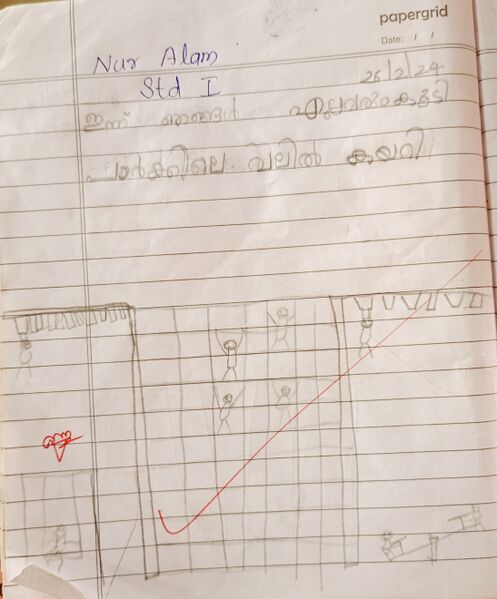 papergrid
Date: / /
Nur Alam
Std I
26/2/24
ഇന്ന് ഞങ്ങൾ എല്ലാവരുംകൂടി
പാർക്കിലെ വലിൽ കയറി